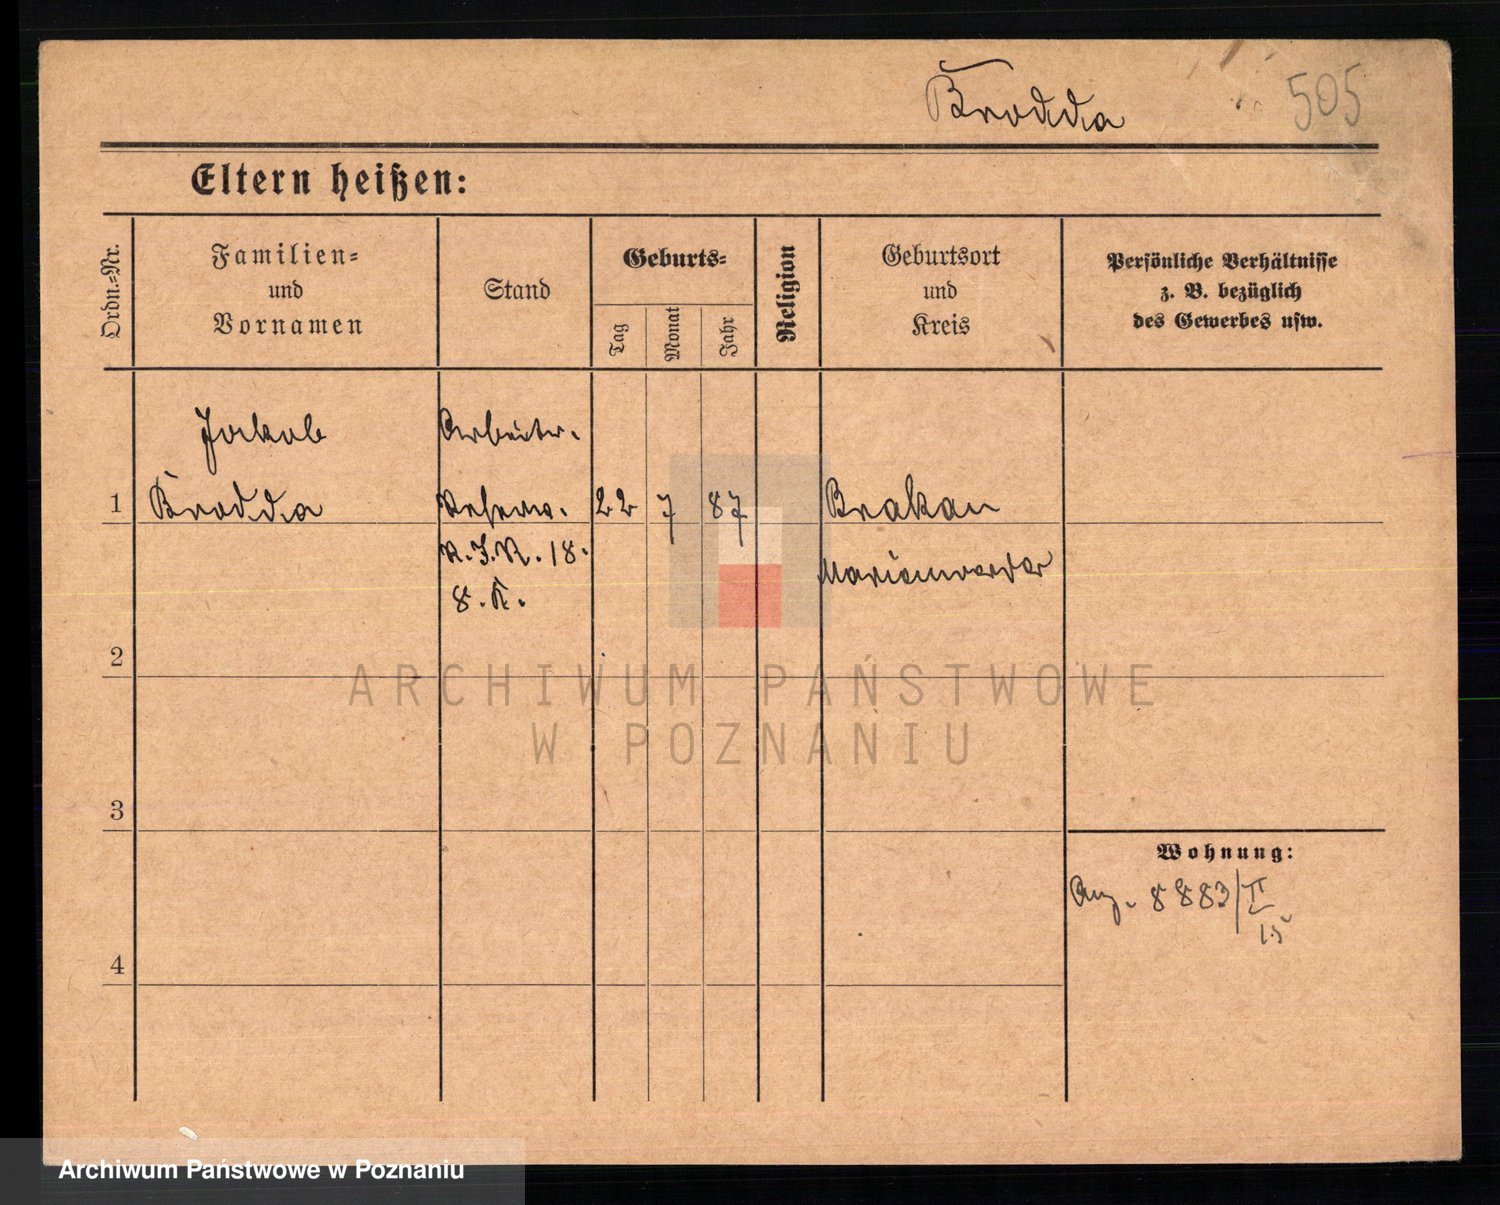 Brodda
505
Eltern heißen:
Ordn.-Nr.
Familien-
und
Vornamen
Stand
Geburts-
Tag
Monat
Jahr
Religion
Geburtsort
und
Kreis
Persönliche Verhältnisse
z. B. bezüglich
des Gewerbes usw.
Jakob
Arbeiter.
1
Brodda
Reserv.
22
7
87
Brakau
R.I.R. 18.
Marienwerder
8.K.
2
ARCHIWUM PAŃSTWOWE
W POZNANIU
3
Wohnung:
8883/II
15
4
Archiwum Państwowe w Poznaniu